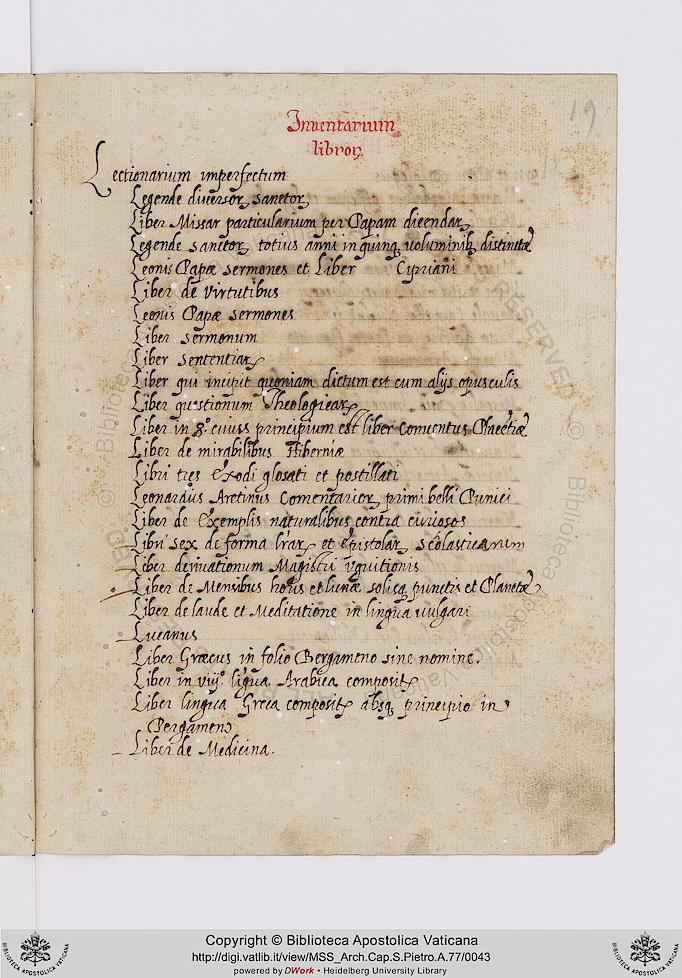 19
Inventarium
libroꝝ
Lectionarium imperfectum
Legende diversoꝝ sanctoꝝ
Liber Missaꝝ particularium per Papam dicendaꝝ
Legende sanctoꝝ totius anni in quinqꝫ voluminibꝫ distinctæ
Leonis Papæ sermones et Liber Cypriani
Liber de virtutibus
Leonis Papæ sermones
Liber sermonum
Liber sententiaꝝ
Liber qui incipit quoniam dictum est cum alijs opusculis
Liber questionum Theologicaꝝ
Liber in 8.º cuius principium est liber Conventus
Liber de mirabilibus Hiberniæ
Libri tres Exodi glosati et postillati
Leonardus Aretinus Comentarioꝝ primi belli Punici
Liber de Exemplis naturalibus contra curiosos
Libri sex de forma lraꝝ et Epistolaꝝ scolasticarum
Liber derivationum Magistri Vguitionis
Liber de Mensibus horis et lunæ solisqꝫ punctis et Planetæ
Liber de laude et Meditatione in lingua vulgari
Lucanus
Liber Græcus in folio Bergameno sine nomine.
Liber in viijº. ligua Arabica composit
Liber lingua Greca composit absqꝫ principio in
Bergameno
Liber de Medicina.
Copyright © Biblioteca Apostolica Vaticana
http://digi.vatlib.it/view/MSS_Arch.Cap.S.Pietro.A.77/0043
powered by DWork • Heidelberg University Library